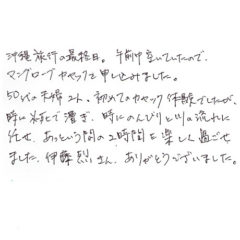 沖縄旅行の最終日。午前中空いていたので、
マングローブカヤックを申し込みました。
50代の夫婦2人、初めてのカヤック体験でしたが、
時に        で漕ぎ、時にのんびりと川の流れに
任せ、あっという間の2時間を楽しく過ごせ
ました。伊藤 さん、ありがとうございました。